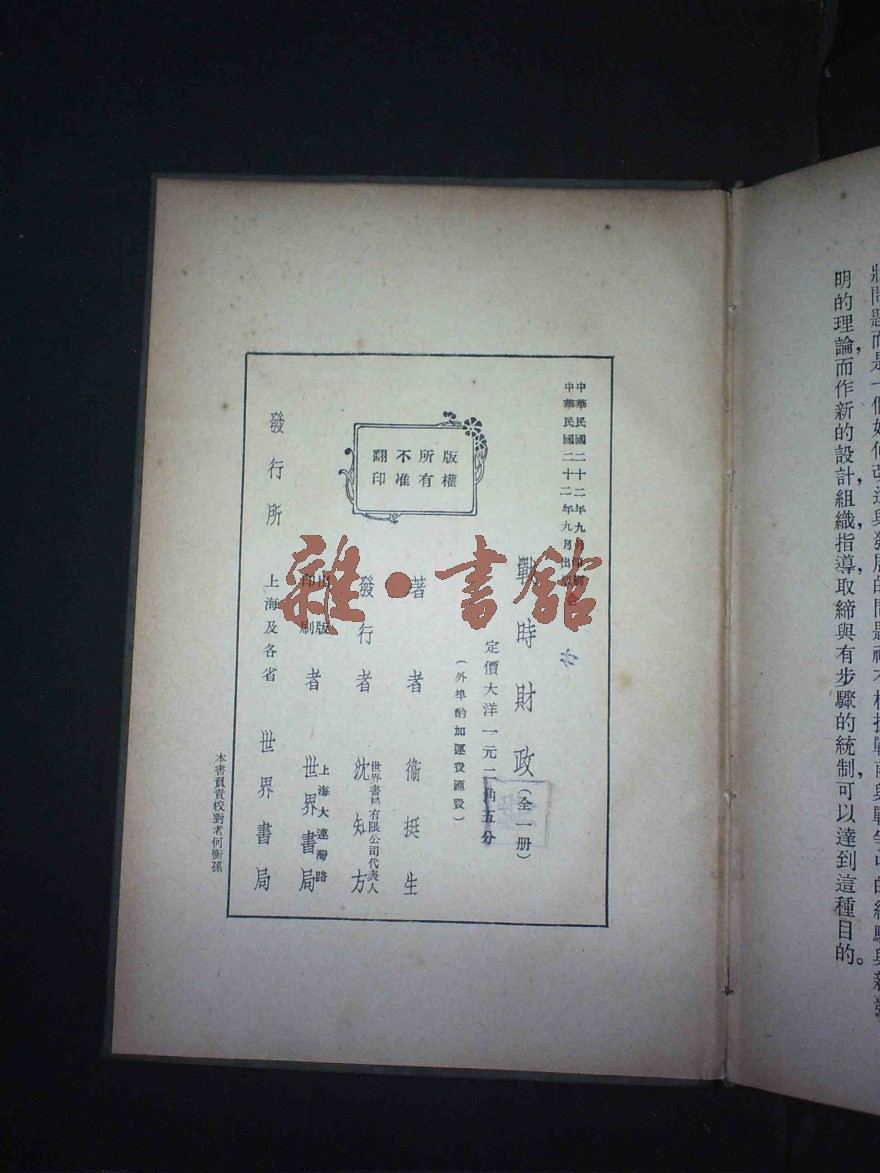 明的理論而作新的設計,組織指導,取締與有步驟的統制,可以達到這種目的。
中華民國二十二年九月印刷
中華民國二十二年九月出版
戰時財政(全一册)
定價大洋一元二角五分
(外埠酌加運費匯費)
版權所有
不准翻印
著者 衞挺生
發行者 世界書局有限公司代表人 沈知方
出版印刷者 上海大連灣路 世界書局
發行所 上海及各省 世界書局
本書負責校對者何衡孫
雜·書館